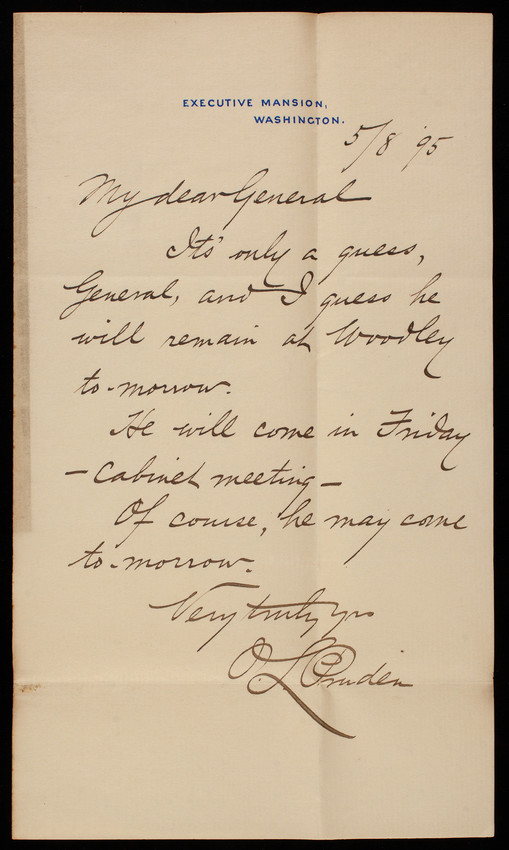 EXECUTIVE MANSION,
WASHINGTON.
5/8 '95
My dear General
Its' only a guess,
General, and I guess he
will remain at Woodley
to-morrow.
He will come in Friday
- Cabinet meeting -
Of course, he may come
to-morrow.
Very truly yrs
O. L. Pruden